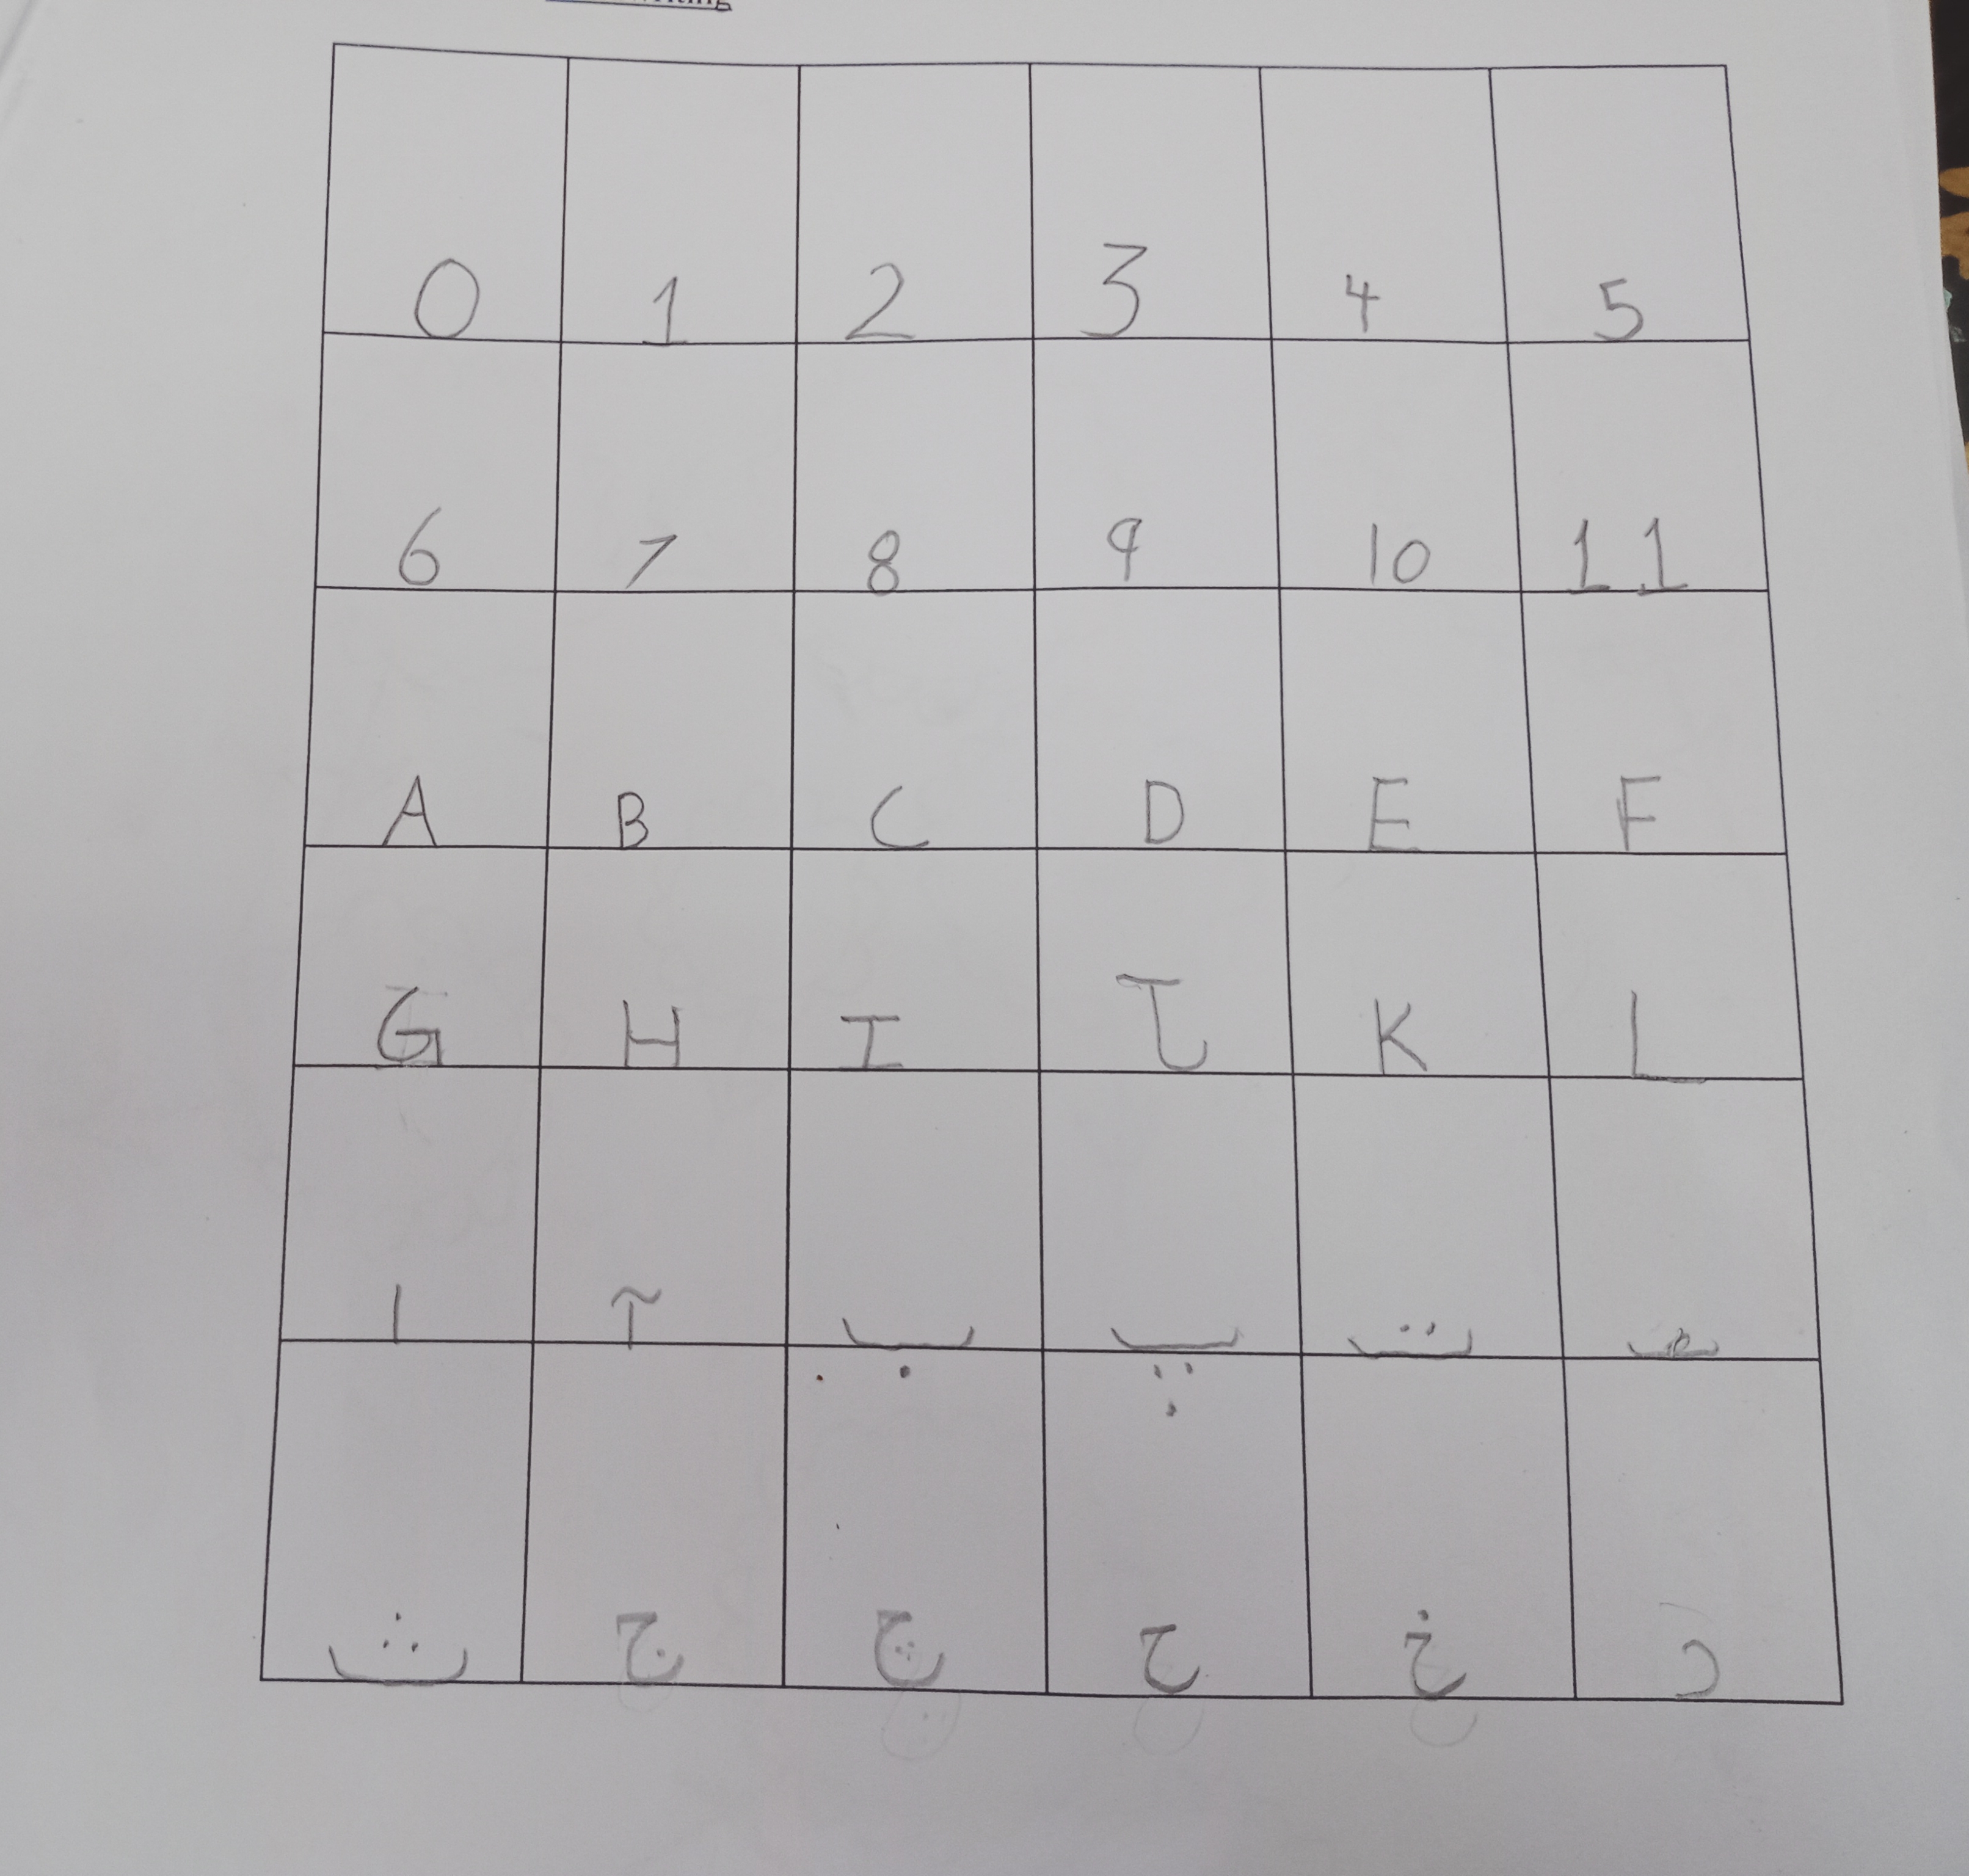 0 1 2 3 4 5
6 7 8 9 10 11
A B C D E F
G H I J K L
ا آ ب پ ت ٹ
ث ج چ ح خ د